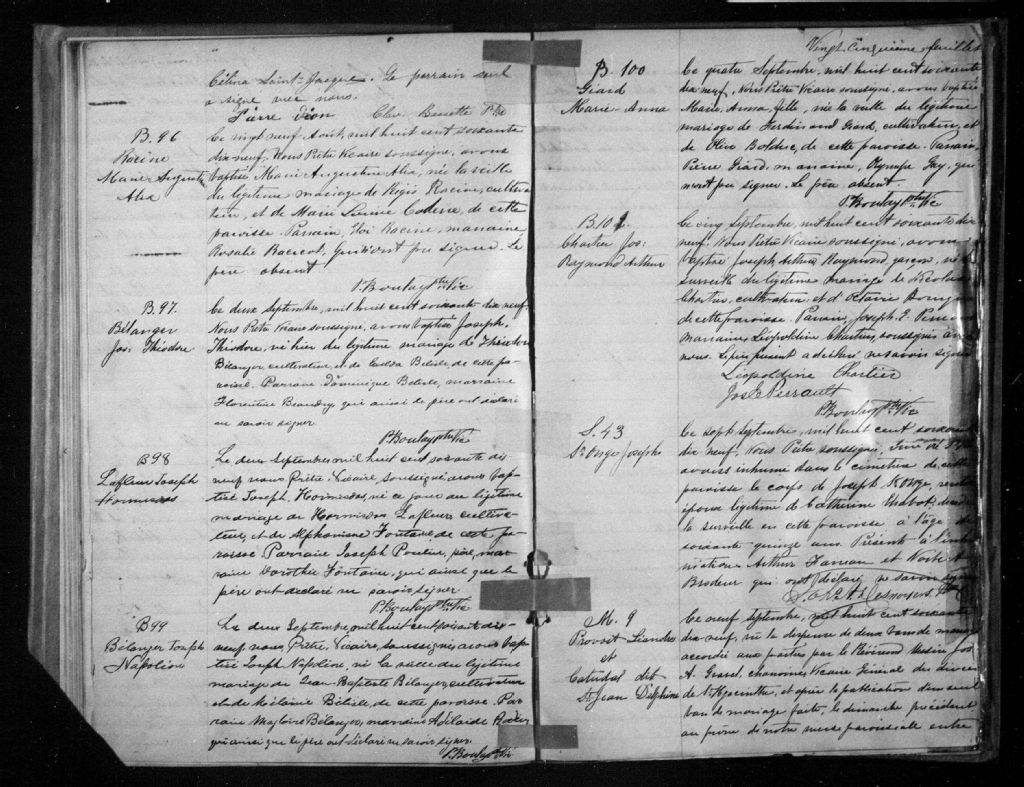 Célina Saint-Jacques. Le parrain seul
a signé avec nous.
Pierre Dion
B. 96
Racine
Marie Augustine
Alia
Ce vingt neuf Août, mil huit cent soixante
dix-neuf. Nous Prêtre Vicaire soussigné, avons
baptisé Marie Augustine Alia, née la veille
du légitime mariage de Régis Racine, cultiva-
teur, et de Marie Coderre, de cette
paroisse. Parrain, Racine, marraine
Rosalie qui n'ont pu signer. Le
père absent
P. Boulay ptre Vic
B. 97.
Bélanger
Jos. Théodore
Ce deux Septembre, mil huit cent soixante dix neuf.
Nous Prêtre Vicaire soussigné, avons baptisé Joseph,
Théodore, né hier du légitime mariage de Théodore
Bélanger, cultivateur, et de Bélisle, de cette pa-
roisse. Parrain Dominique Bélisle, marraine
Florentine Beaudry, qui ainsi le père ont déclaré
ne savoir signer
P. Boulay ptre Vic
B 98
Lafleur Joseph
Hormisdas
Le deux Septembre mil huit cent soixante dix
neuf nous Prêtre Vicaire soussigné avons bap-
tisé Joseph, Hormisdas, né ce jour du légitime
mariage de Hormisdas Lafleur, cultiva-
teur, et de Alphonsine Fontaine de cette pa-
roisse. Parrain Joseph Poulin, père, mar-
raine Dorothée Fontaine, qui ainsi que le
père ont déclaré ne savoir signer
P. Boulay ptre Vic
B 99
Bélanger Joseph
Napoléon
Le deux Septembre mil huit cent soixante dix-
neuf nous Prêtre, Vicaire, soussigné avons bap-
tisé Joseph Napoléon, né la veille du légitime
mariage de Jean-Baptiste Bélanger, cultivateur
et de Mélanie Bélisle, de cette paroisse. Par-
rain Magloire Bélanger, marraine Adélaïde
qui ainsi que le père ont déclaré ne savoir signer.
P. Boulay Ptre Vic
Vingt cinquième feuillet
B. 100
Giard
Marie-Anna
Ce quatre Septembre, mil huit cent soixante
dix neuf, Nous Prêtre Vicaire soussigné, avons baptisé
Marie-Anna, fille, née la veille du légitime
mariage de Ferdinand Giard, cultivateur, et
de Olive Bolduc, de cette paroisse. Parrain,
Pierre Giard, marraine, Olympe Gay, qui
n'ont pu signer. Le père absent.
P. Boulay ptre Vic
B. 101
Chartier Jos:
Raymond Arthur
Ce cinq Septembre, mil huit cent soixante dix
neuf. Nous Prêtre Vicaire soussigné, avons
baptisé Joseph Arthur Raymond, garçon, né
surveille du légitime mariage de Nicolas
Chartier, cultivateur et d'Octavie
de cette paroisse. Parrain, Joseph E.
Marraine Léopoldine Chartier, soussignés avec
nous. Le père présent a déclaré ne savoir signer
Léopoldine Chartier
Jos E Perrault
P. Boulay Ptre Vic
S. 43
St Onge Joseph
Ce sept Septembre, mil huit cent soixante
dix neuf, Nous Prêtre soussigné,
avons inhumé dans le cimetière de cette
paroisse le corps de Joseph
époux légitime de Catherine Chabot,
la surveille en cette paroisse à l'âge de
soixante quinze ans. Présents à l'inhu-
mation Arthur et
Brodeur qui ont déclaré ne savoir signer
M. 9
Provost Leandre
et
Catudal dit
St Jean Delphine
Ce neuf Septembre, mil huit cent soixante
dix-neuf, vu la dispense de deux bans de mariage
accordée aux parties par le Révérend Messire Jos
A. Gravel, chanoine Vicaire Général du diocèse
de St Hyacinthe, et après la publication d'un seul
ban de mariage faite, le dimanche précédent
au prône de notre messe paroissiale entre